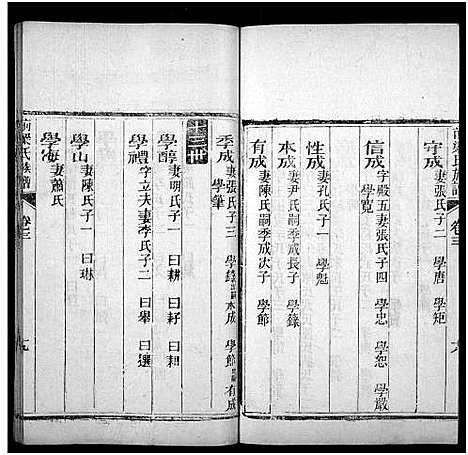 守成 妻張氏子二 學唐 學矩
信成 字殿五妻張氏子四 學忠 學恕 學嚴
學寬
性成 妻孔氏子一 學魁
本成 妻尹氏嗣季成長子 學錄
有成 妻陳氏嗣季成次子 學節
季成 妻張氏子三 學錄 本成 學節 有成
學肇
世
學醇 妻明氏子一 曰耕 曰耔 曰耜
學禮 字立夫妻李氏子二 曰舉 曰選
學山 妻陳氏子一 曰琳
學海 妻蕭氏
梁氏族譜 卷三 十九